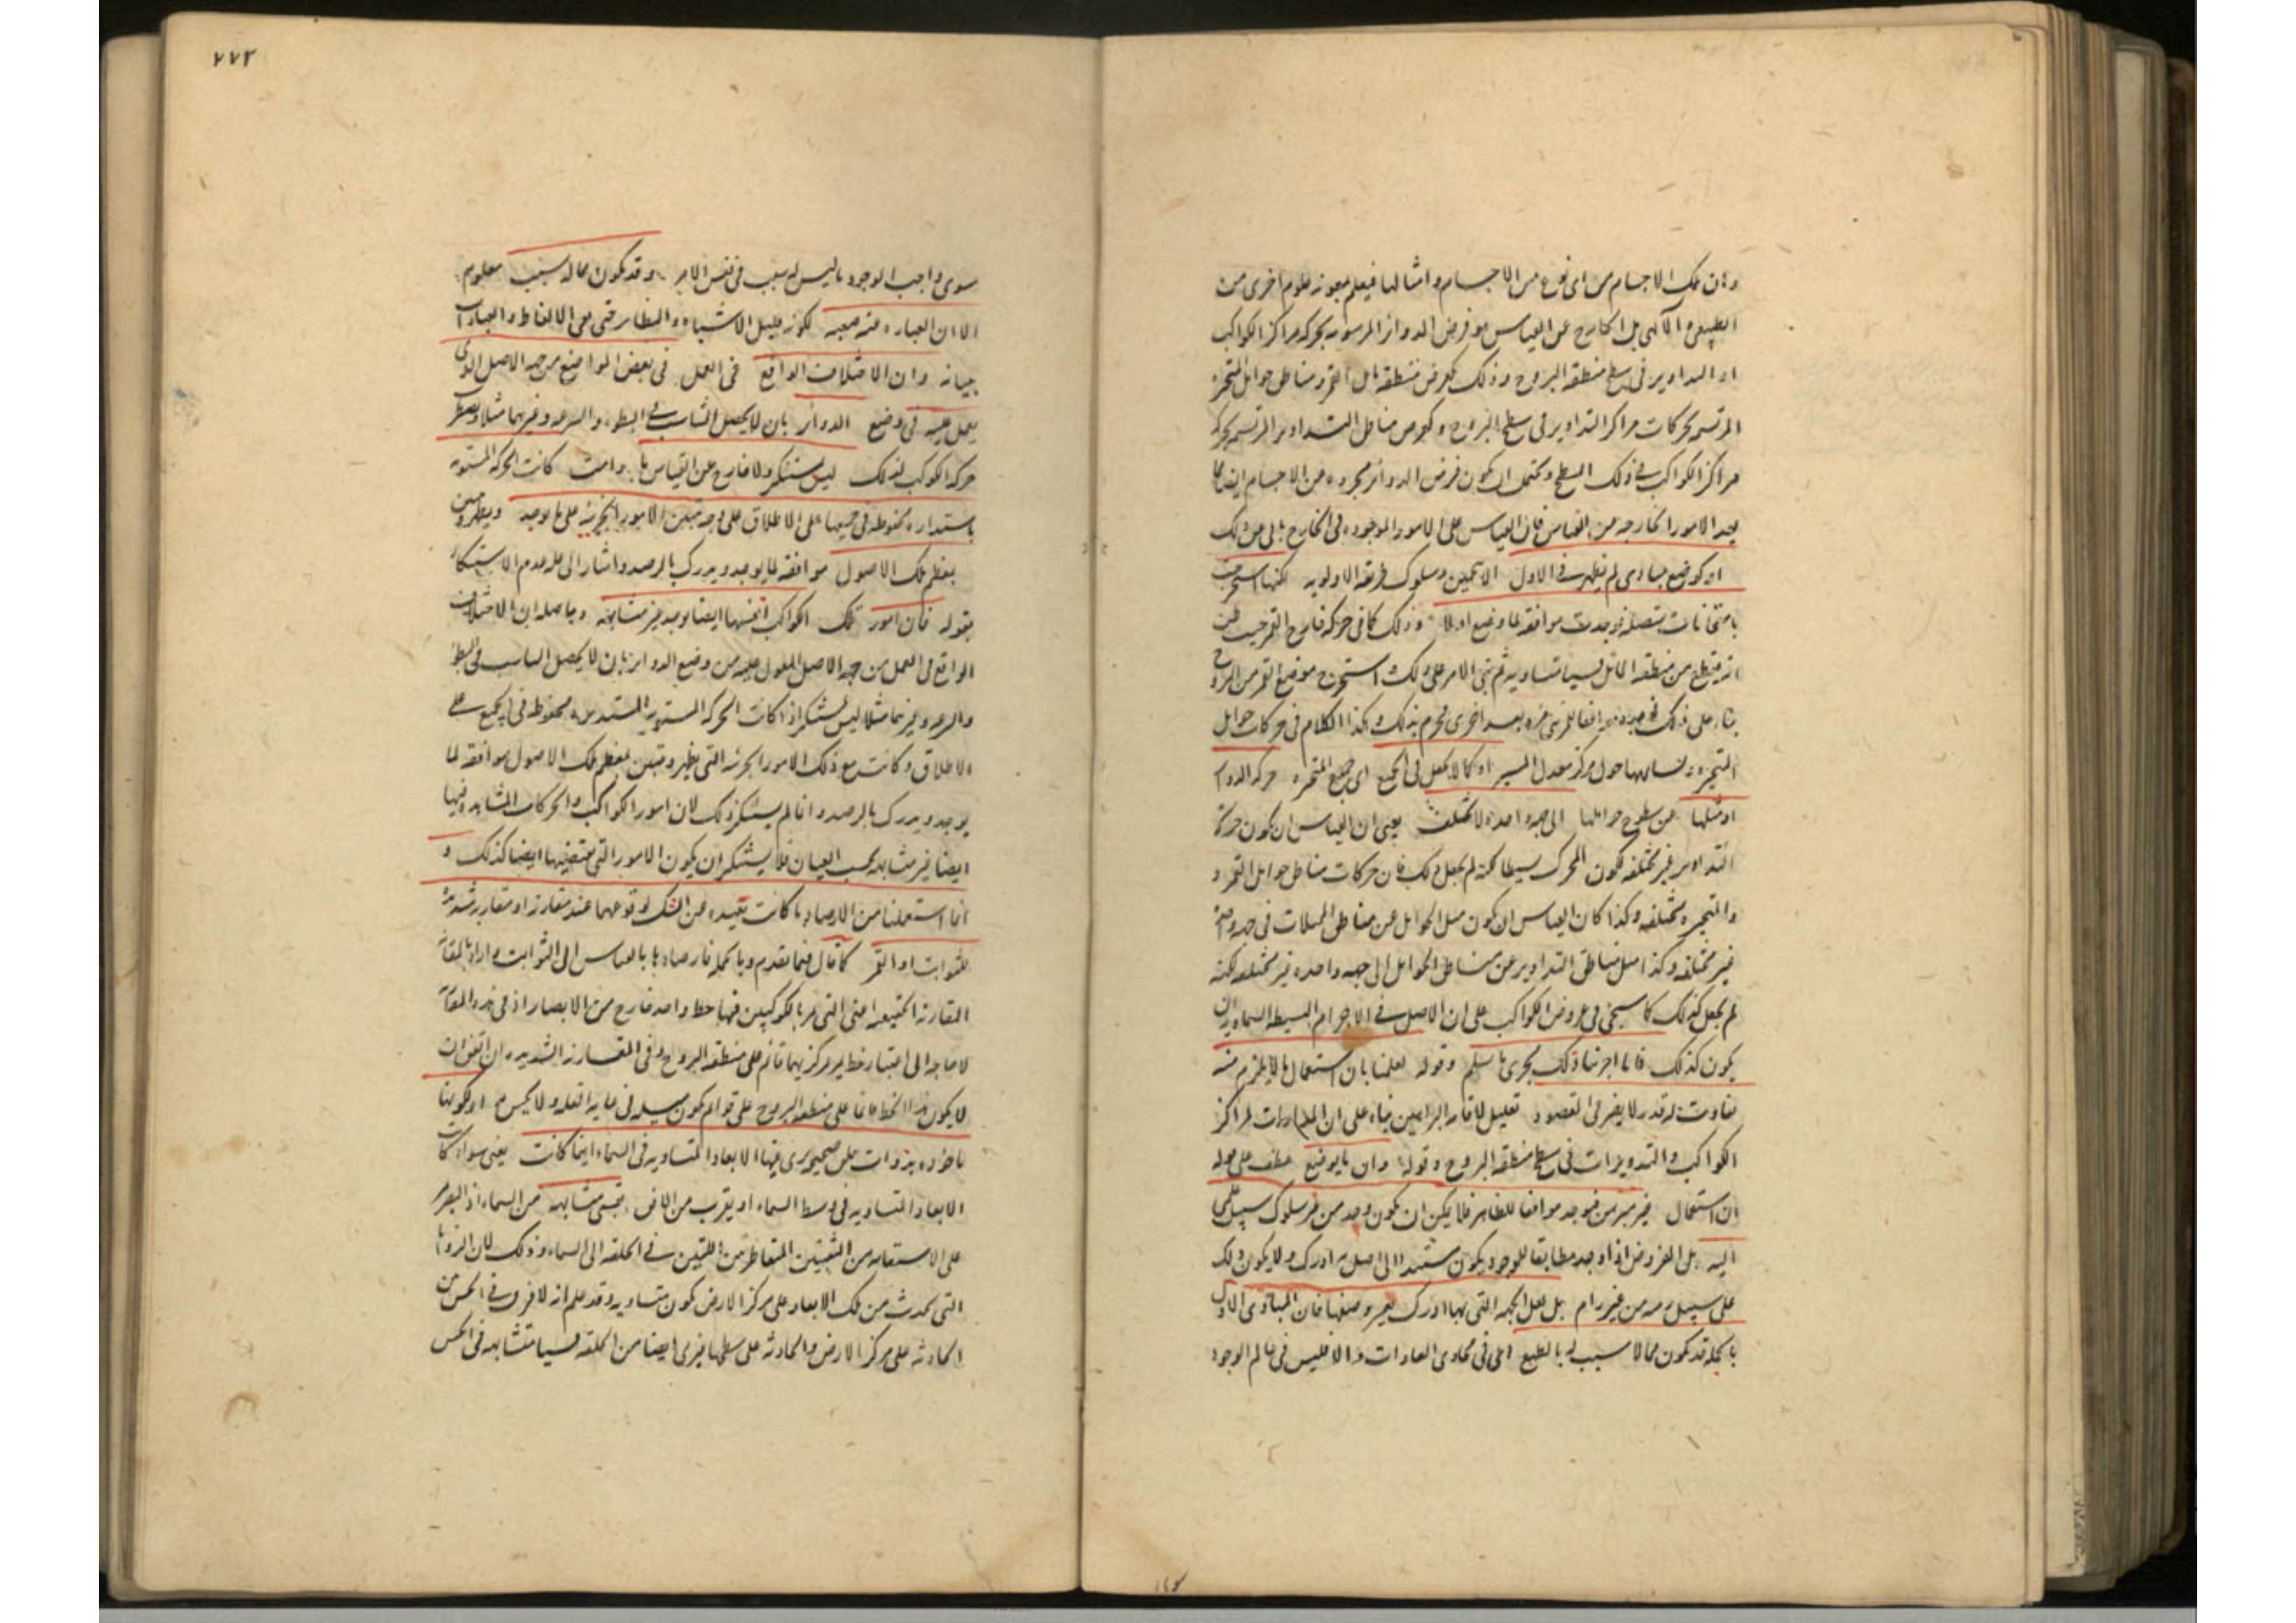 وان تلك الاجسام من اى نوع من الاجسام وامثالها فيعلم بمعونة علوم اخرى من
الطبيعى والالهى بل الخارج عن القياس هو فرض الدوائر المرسومة بحركة مراكز الكواكب
او التداوير فى سطح منطقة البروج وذلك كفرض منطقة مائل القمر ومناطق حوامل المتحيرة
المرتسمة بحركات مراكز التداوير فى سطح البروج وكفرض مناطق التداوير المرتسمة بحركة
مراكز الكواكب فى ذلك السطح ويحتمل ان يكون فرض الدوائر مجردة عن الاجسام ايضا مما
يعد الامور الخارجة عن القياس فان القياس على الامور الموجودة فى الخارج
او كوضع مبادى لم يظهر فى الاول الا بتخمين وسلوك طريقة الاولوية لكنها استخرجت
بامتحانات متصلة فوجدت موافقة لما وضع اولا وذلك كما فى حركة خارج القمر حيث ظن
انه يقطع من منطقة المائل قسيا متساوية ثم بنى الامر على ذلك واستخرج موضع القمر من البروج
بناء على ذلك فوجده موافقا للرؤية مرة بعد اخرى فجزم بذلك وكذا الكلام فى حركات حوامل
المتحيرة وتشابهها حول مركز معدل المسير او كما لا يجعل فى الجميع اى جميع المتحيرة حركة الدوائر
او ميلها عن سطوح حواملها الى جهة واحدة لا تختلف يعنى ان القياس ان يكون حركة
التداوير غير مختلفة لكون المحرك بسيطا لكنه لم يجعل ذلك فان حركات مناطق حوامل القمر و
والمتحيرة مختلفة وكذا كان القياس ان يكون ميل الحوامل عن مناطق الممثلات فى جهة واحدة
غير مختلفة وكذا ميل مناطق التداوير عن مناطق الحوامل الى جهة واحدة غير مختلفة لكنه
لم يجعل كذلك كما سيجئ فى عروض الكواكب على ان الاصل فى الاجرام البسيطة السماوية ان
يكون كذلك فانا اجرينا ذلك مجرى ما سلم وقوله لعلمنا بان استعمالها لا يلزم منه
تفاوت له قدر لا يضر فى المقصود تعليل لاقامة البراهين بناء على ان المدارات لمراكز
الكواكب والتدويرات فى سطح منطقة البروج وقوله وان ما يوضع عطف على قوله
ان استعمال غير مبرهن فوجد موافقا للظاهر فلا يمكن ان يكون وجد من غير سلوك سبيل علمى
اليه بل المفروض اذا وجد مطابقا للوجود يكون مستندا الى اصل به ادرك ولا يكون ذلك
على سبيل رمية من غير رام بل لعل الجهة التى بها ادرك يعسر وصفها فان المبادى الاول
بالجملة قد يكون مما لا سبب له بالطبع اى فى مجارى العادات والا فليس فى عالم الوجود
٢٧٣
سوى واجب الوجود ما ليس له سبب فى نفس الامر وقد يكون مما له سبب معلوم
الا ان العبارة عنه صعبة لكونه قليل الاشباه والنظائر حتى يفى الالفاظ والعبارات
ببيانه وان الاختلاف الواقع فى العمل فى بعض المواضع من جهة الاصل الذى
يعمل عليه فى وضع الدوائر بان لا يحصل التناسب فى البطء والسرعة وغيرهما مثلا
حركة الكوكب لذلك ليس بمستنكر ولا خارج عن القياس ما دامت كانت الحركة المستوية
باستدارة محفوظة فى جميعها على الاطلاق على وجه يتبين الامور الجزئية على ما يوجد ويظهر
بعظم تلك الاصول موافقة لما يوجد ويدرك بالرصد واشار الى علة عدم الاستنكار
بقوله فان امور تلك الكواكب انفسها ايضا يوجد غير متشابهة وحاصله ان الاختلاف
الواقع فى العمل من جهة الاصل المعول عليه من وضع الدوائر بان لا يحصل التناسب فى البطء
والسرعة وغيرهما مثلا ليس بمستنكر اذا كانت الحركة المستوية المستديرة محفوظة فى الجميع على
الاطلاق وكانت مع ذلك الامور الجزئية التى يظهر ويتبين بعظم تلك الاصول موافقة لما
يوجد ويدرك بالرصد وانما لم يستنكر ذلك لان امور الكواكب والحركات المشاهدة فيها
ايضا غير متشابهة بحسب العيان فلا يستنكر ان يكون الامور التى يقتضيها ايضا كذلك و
انما استعملنا من الارصاد ما كانت بعيدة عن الشك لوقوعها عند مقارنة او مقاربة شديدة
للثوابت او القمر كما قال فيما تقدم وبالجملة فارصادها بالقياس الى الثوابت واراد بالمقارنة
المقارنة الحقيقية اعنى التى يمر بالكوكبين فيها خط واحد خارج من الابصار اذ فى هذه المقارنة
لا حاجة الى اعتبار خط يمر بمركزيهما قائم على منطقة البروج وفى المقارنة الشديدة ان اتفق ان
لا يكون هذا الخط قائما على منطقة البروج على قوائم يكون ميله فى غاية القلة ولا يحس به او لكونها
ماخوذة بذوات حلق صحيحة يرى فيها الابعاد المتساوية فى السماء اينما كانت يعنى سواء كانت
الابعاد المتساوية فى وسط السماء او بقرب من الافق بقسى متشابهة من السماء اذ البصر يمر
على الاستقامة من الثقبتين المتقاطرتين اللتين فى الحلقة الى السماء وذلك لان الزوايا
التى تحدث من تلك الابعاد على مركز الارض يكون متساوية وقد علم انه لا فرق فى الحس بين
الحادثة على مركز الارض والحادثة على سطحها فيرى ايضا من الحلقة قسيا متشابهة فى الحس